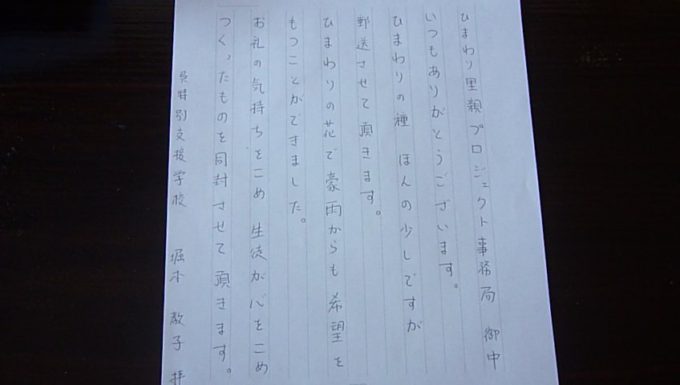 ひまわり里親プロジェクト事務局 御中
いつもありがとうございます。
ひまわりの種 ほんの少しですが
郵送させて頂きます。
ひまわりの花で豪雨からも希望を
もつことができました。
お礼の気持ちをこめ 生徒が心をこめ
つくったものを同封させて頂きます。
特別支援学校 堀木 敬子 拝